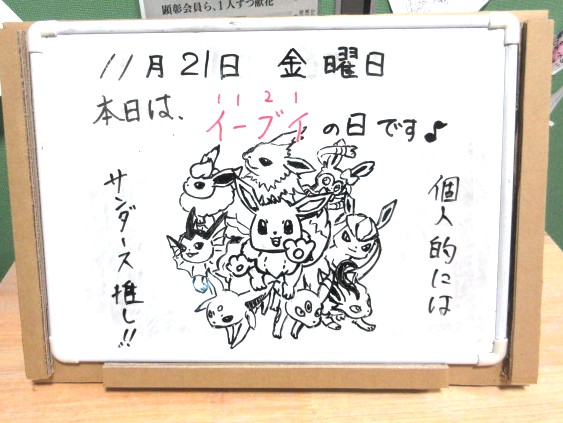 顕彰会員ら、1人ずつ献花
11月21日 金曜日
1 1 2 1
本日は、イーブイの日です♪
個人的には
サンダース推し!!